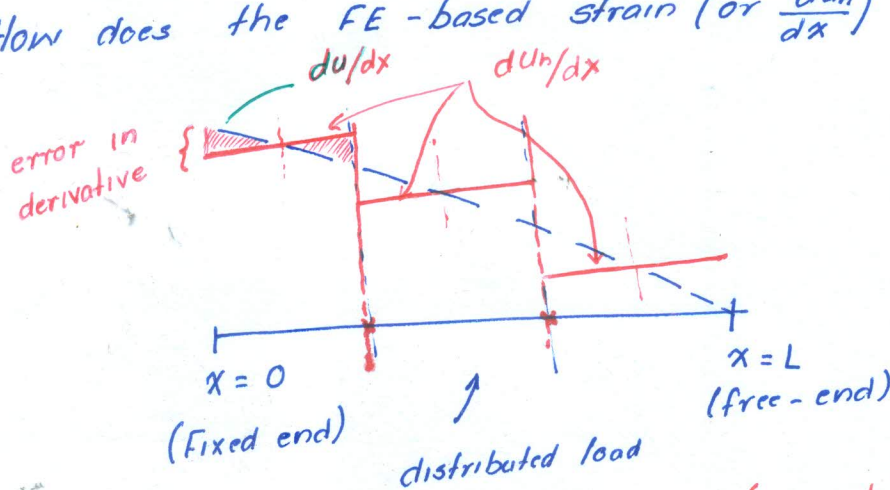 How does the FE-based strain (or duh/dx)
du/dx
duh/dx
error in
derivative
x = 0
(Fixed end)
distributed load
x = L
(free-end)